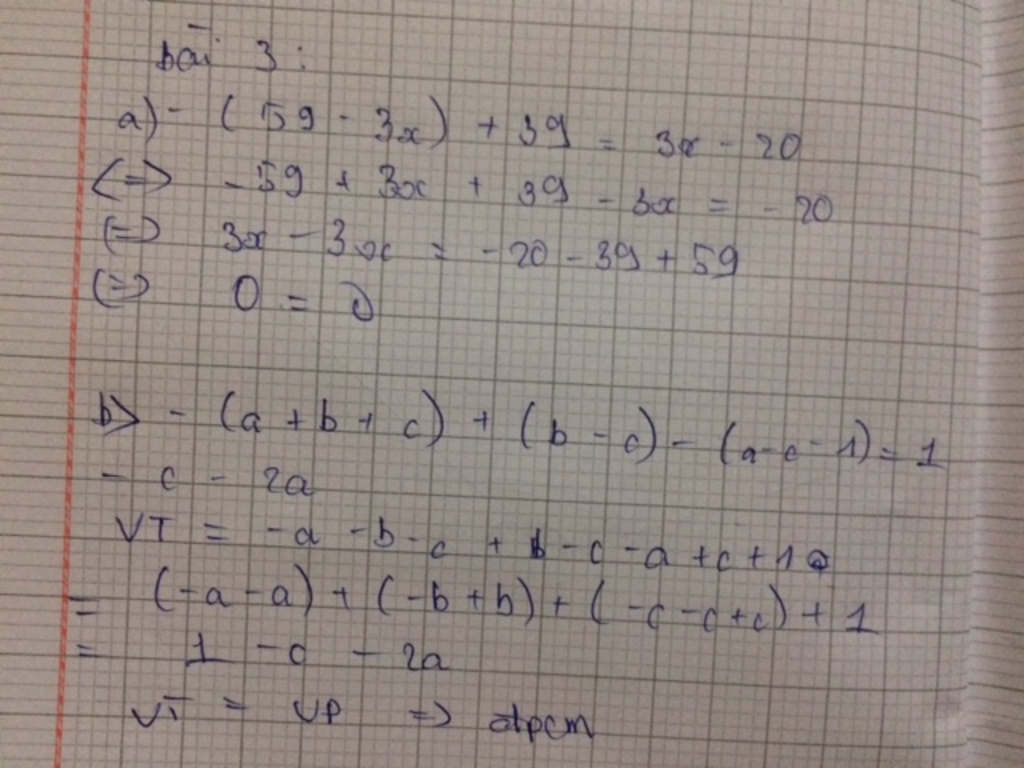 bài 3 :
a) - ( 59 - 3x ) + 39 = 3x - 20
<=> - 59 + 3x + 39 - 3x = - 20
(=) 3x - 3x = - 20 - 39 + 59
(=) 0 = 0
b> - (a + b + c) + (b - c) - (a - c - 1) = 1
- c - 2a
VT = - a - b - c + b - c - a + c + 1
= (- a - a) + (- b + b) + ( - c - c + c) + 1
= 1 - c - 2a
VT = VP => đpcm